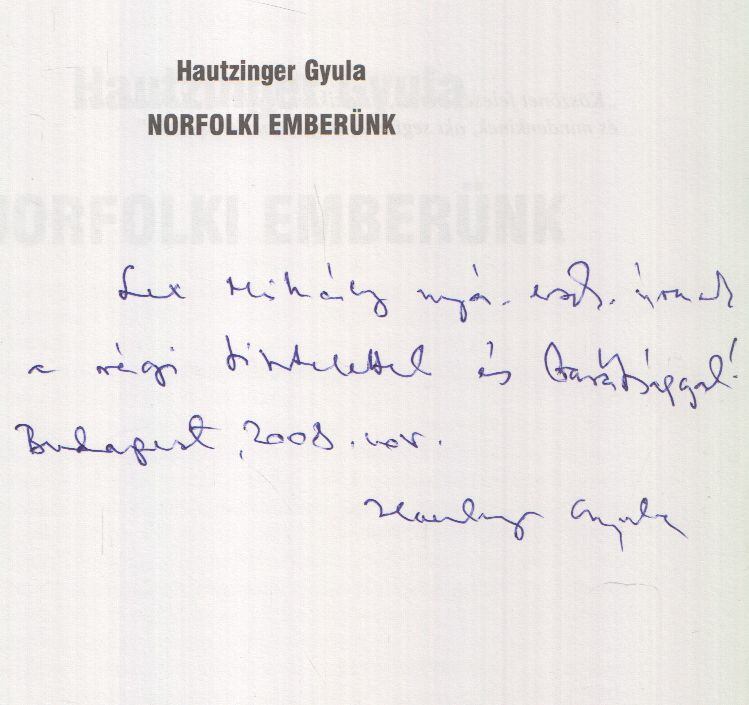 Hautzinger Gyula
NORFOLKI EMBERÜNK
Lex Mihály nyá. úrnak
a régi tisztelettel és barátsággal!
Budapest, 2008. nov.
Hautzinger Gyula